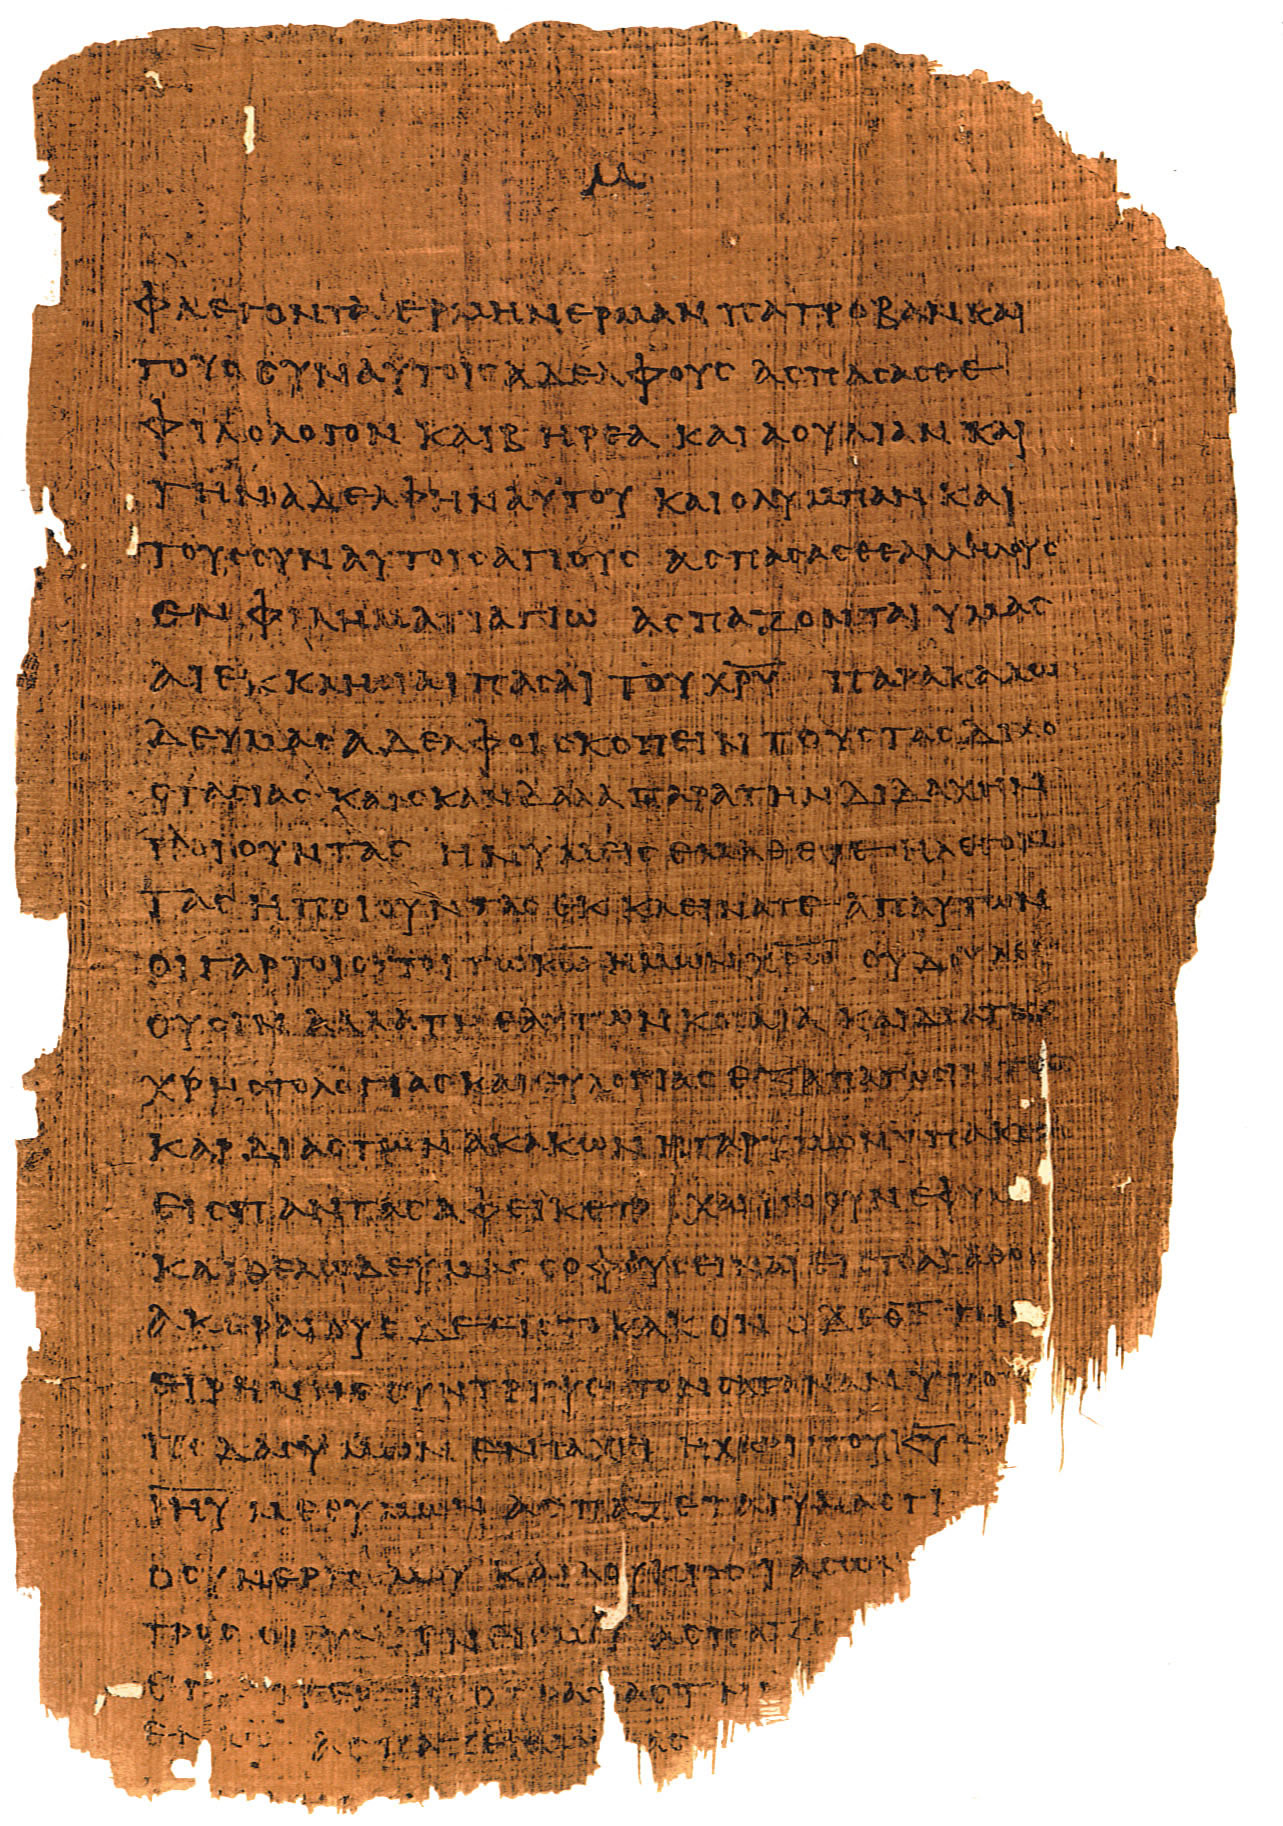 μ
ΦΛΕΓΟΝΤΑ ΕΡΜΗΝ ΕΡΜΑΝ ΠΑΤΡΟΒΑΝ ΚΑΙ
ΤΟΥϹ ϹΥΝ ΑΥΤΟΙϹ ΑΔΕΛΦΟΥϹ ΑϹΠΑϹΑϹΘΕ
ΦΙΛΟΛΟΓΟΝ ΚΑΙ ΒΗΡΕΑ ΚΑΙ ΑΟΥΛΙΑΝ ΚΑΙ
ΤΗΝ ΑΔΕΛΦΗΝ ΑΥΤΟΥ ΚΑΙ ΟΛΥΜΠΑΝ ΚΑΙ
ΤΟΥϹ ϹΥΝ ΑΥΤΟΙϹ ΑΓΙΟΥϹ ΑϹΠΑϹΑϹΘΕ ΑΛΛΗΛΟΥϹ
ΕΝ ΦΙΛΗΜΑΤΙ ΑΓΙΩ ΑϹΠΑΖΟΝΤΑΙ ΥΜΑϹ
ΑΙ ΕΚΚΛΗϹΙΑΙ ΠΑϹΑΙ ΤΟΥ ΧΡΥ ΠΑΡΑΚΑΛΩ
ΔΕ ΥΜΑϹ ΑΔΕΛΦΟΙ ϹΚΟΠΕΙΝ ΤΟΥϹ ΤΑϹ ΔΙΧΟ
ϹΤΑϹΙΑϹ ΚΑΙ ϹΚΑΝΔΑΛΑ ΠΑΡΑ ΤΗΝ ΔΙΔΑΧΗΝ
ΠΟΙΟΥΝΤΑϹ ΗΝ ΥΜΕΙϹ ΕΜΑΘΕΤΕ Η ΛΕΓΟΝ
ΤΑϹ Η ΠΟΙΟΥΝΤΑϹ ΕΚΚΛΕΙΝΑΤΕ ΑΠ ΑΥΤΩΝ
ΟΙ ΓΑΡ ΤΟΙΟΥΤΟΙ ΤΩ ΚΩ ΗΜΩΝ ΧΡΩ ΟΥ ΔΟΥΛΕΥ
ΟΥϹΙΝ ΑΛΛΑ ΤΗ ΕΑΥΤΩΝ ΚΟΙΛΙΑ ΚΑΙ ΔΙΑ ΤΗϹ
ΧΡΗϹΤΟΛΟΓΙΑϹ ΚΑΙ ΕΥΛΟΓΙΑϹ ΕΞΑΠΑΤΩϹΙΝ ΤΑϹ
ΚΑΡΔΙΑϹ ΤΩΝ ΑΚΑΚΩΝ Η ΓΑΡ ΥΜΩΝ ΥΠΑΚΟΗ
ΕΙϹ ΠΑΝΤΑϹ ΑΦΕΙΚΕΤΟ ΧΑΙΡΩ ΟΥΝ ΕΦ ΥΜ
ΚΑΙ ΘΕΛΩ ΔΕ ΥΜΑϹ ϹΟΦΟΥϹ ΕΙΝΑΙ ΕΙϹ ΤΟ ΑΓΑΘΟΝ
ΑΚΕΡΑΙΟΥϹ ΔΕ ΕΙϹ ΤΟ ΚΑΚΟΝ Ο ΔΕ ΘϹ ΤΗϹ
ΕΙΡΗΝΗϹ ϹΥΝΤΡΙΨΕΙ ΤΟΝ ϹΑΤΑΝΑΝ ΥΠΟ ΤΟΥϹ
ΠΟΔΑϹ ΥΜΩΝ ΕΝ ΤΑΧΕΙ Η ΧΑΡΙϹ ΤΟΥ ΚΥ
ΙΗΥ ΜΕΘ ΥΜΩΝ ΑϹΠΑΖΕΤΑΙ ΥΜΑϹ ΤΙ
Ο ϹΥΝΕΡΓΟϹ ΜΟΥ ΚΑΙ ΛΟΥΚΙΟϹ ΚΑΙ ΙΑϹΩΝ
ΤΡΟϹ ΟΙ ϹΥΓΓΕΝΕΙϹ ΜΟΥ ΑϹΠΑΖΟ
ΕΓΩ ΤΕΡΤΙΟϹ Ο ΓΡΑΨΑϹ ΤΗΝ
ΕΝ ΚΩ ΑϹΠΑΖΕΤΑΙ ΥΜΑϹ